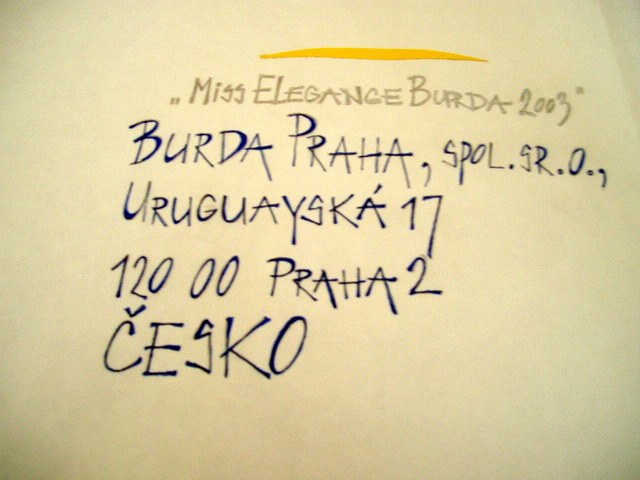 „Miss Elegance Burda 2003"
Burda Praha, spol. sr.o.,
Uruguayská 17
120 00 Praha 2
Česko